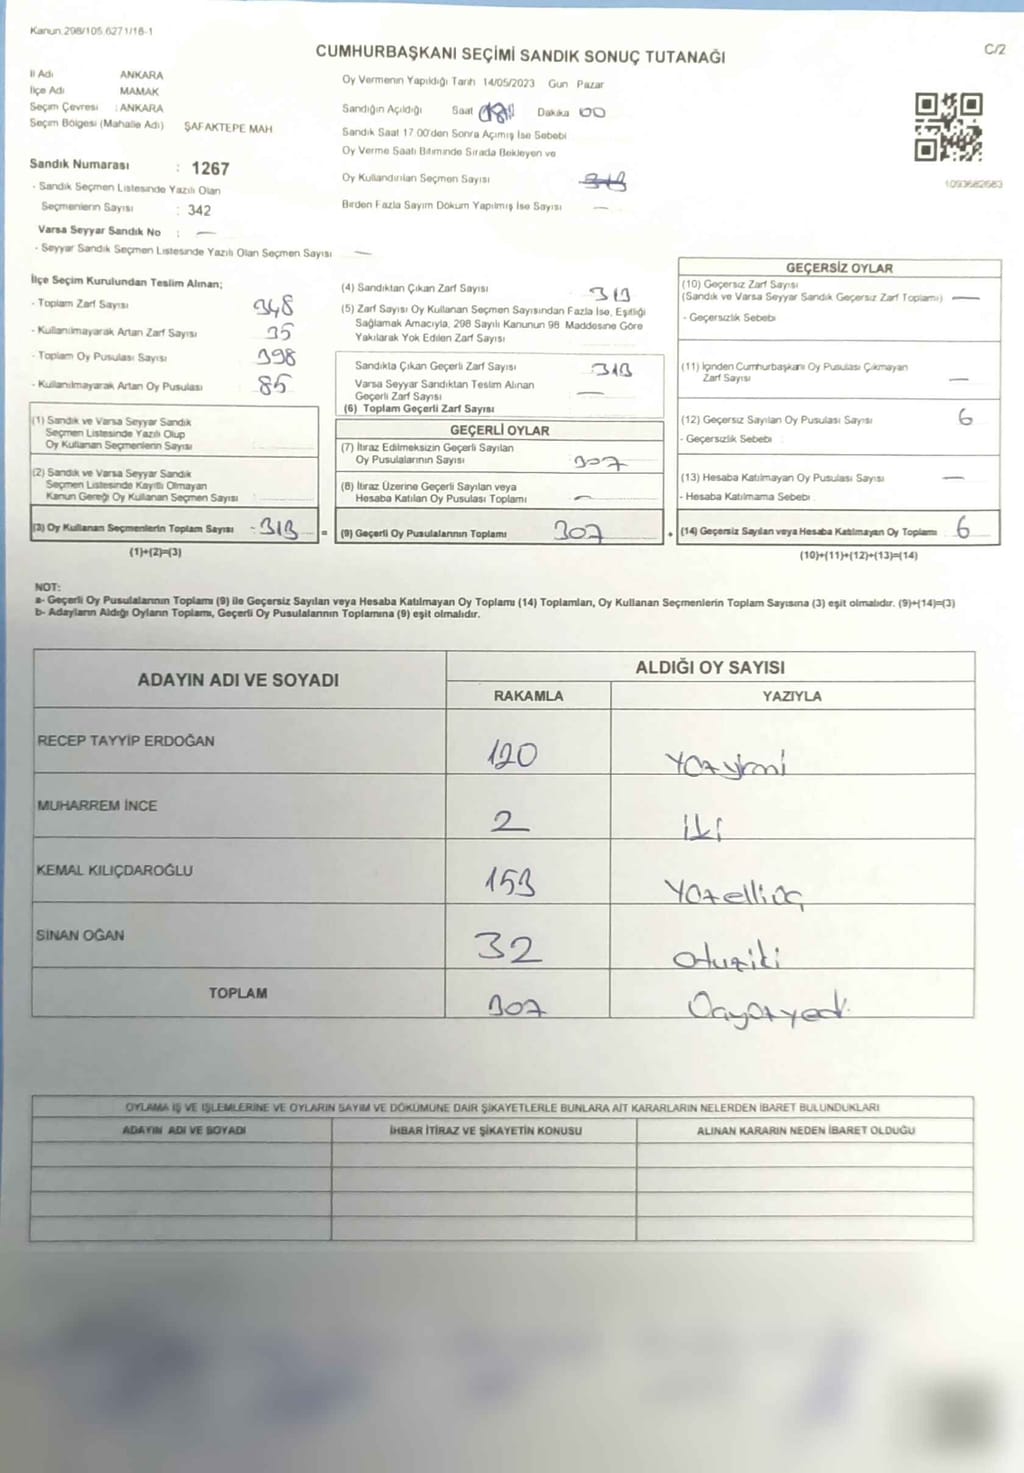 Kanun.298/105.6271/18-1
CUMHURBAŞKANI SEÇİMİ SANDIK SONUÇ TUTANAĞI
C/2
İl Adı ANKARA
İlçe Adı MAMAK
Seçim Çevresi : ANKARA
Seçim Bölgesi (Mahalle Adı) ŞAFAKTEPE MAH
Sandık Numarası : 1267
- Sandık Seçmen Listesinde Yazılı Olan
Seçmenlerin Sayısı : 342
Varsa Seyyar Sandık No : —
- Seyyar Sandık Seçmen Listesinde Yazılı Olan Seçmen Sayısı —
Oy Vermenin Yapıldığı Tarih 14/05/2023 Gün Pazar
Sandığın Açıldığı Saat Dakika 00
Sandık Saat 17.00'den Sonra Açımış İse Sebebi
Oy Verme Saati Bitiminde Sırada Bekleyen ve
Oy Kullandırılan Seçmen Sayısı 313
Birden Fazla Sayım Döküm Yapılmış İse Sayısı —
1093682683
İlçe Seçim Kurulundan Teslim Alınan;
- Toplam Zarf Sayısı 348
- Kullanılmayarak Artan Zarf Sayısı 35
- Toplam Oy Pusulası Sayısı 398
- Kullanılmayarak Artan Oy Pusulası 85
(1) Sandık ve Varsa Seyyar Sandık
Seçmen Listesinde Yazılı Olup
Oy Kullanan Seçmenlerin Sayısı
(2) Sandık ve Varsa Seyyar Sandık
Seçmen Listesinde Kayıtlı Olmayan
Kanun Gereği Oy Kullanan Seçmen Sayısı
(3) Oy Kullanan Seçmenlerin Toplam Sayısı 313 =
(1)+(2)=(3)
(4) Sandıktan Çıkan Zarf Sayısı 313
(5) Zarf Sayısı Oy Kullanan Seçmen Sayısından Fazla İse, Eşitliği
Sağlamak Amacıyla, 298 Sayılı Kanunun 98 Maddesine Göre
Yakılarak Yok Edilen Zarf Sayısı
Sandıkta Çıkan Geçerli Zarf Sayısı 313
Varsa Seyyar Sandıktan Teslim Alınan
Geçerli Zarf Sayısı —
(6) Toplam Geçerli Zarf Sayısı
GEÇERLİ OYLAR
(7) İtiraz Edilmeksizin Geçerli Sayılan
Oy Pusulalarının Sayısı 307
(8) İtiraz Üzerine Geçerli Sayılan veya
Hesaba Katılan Oy Pusulası Toplamı —
(9) Geçerli Oy Pusulalarının Toplamı 307 +
GEÇERSİZ OYLAR
(10) Geçersiz Zarf Sayısı
(Sandık ve Varsa Seyyar Sandık Geçersiz Zarf Toplamı) —
- Geçersizlik Sebebi
(11) İçinden Cumhurbaşkanı Oy Pusulası Çıkmayan
Zarf Sayısı —
(12) Geçersiz Sayılan Oy Pusulası Sayısı 6
- Geçersizlik Sebebi
(13) Hesaba Katılmayan Oy Pusulası Sayısı —
- Hesaba Katılmama Sebebi
(14) Geçersiz Sayılan veya Hesaba Katılmayan Oy Toplamı 6
(10)+(11)+(12)+(13)=(14)
NOT:
a- Geçerli Oy Pusulalarının Toplamı (9) ile Geçersiz Sayılan veya Hesaba Katılmayan Oy Toplamı (14) Toplamları, Oy Kullanan Seçmenlerin Toplam Sayısına (3) eşit olmalıdır. (9)+(14)=(3)
b- Adayların Aldığı Oyların Toplamı, Geçerli Oy Pusulalarının Toplamına (9) eşit olmalıdır.
ADAYIN ADI VE SOYADI ALDIĞI OY SAYISI
RAKAMLA YAZIYLA
RECEP TAYYİP ERDOĞAN 120 Yüzyirmi
MUHARREM İNCE 2 iki
KEMAL KILIÇDAROĞLU 153 Yüzelliüç
SİNAN OĞAN 32 otuziki
TOPLAM 307 Üçyüzyedi
OYLAMA İŞ VE İŞLEMLERİNE VE OYLARIN SAYIM VE DÖKÜMÜNE DAİR ŞİKAYETLERLE BUNLARA AİT KARARLARIN NELERDEN İBARET BULUNDUKLARI
ADAYIN ADI VE SOYADI İHBAR İTİRAZ VE ŞİKAYETİN KONUSU ALINAN KARARIN NEDEN İBARET OLDUĞU